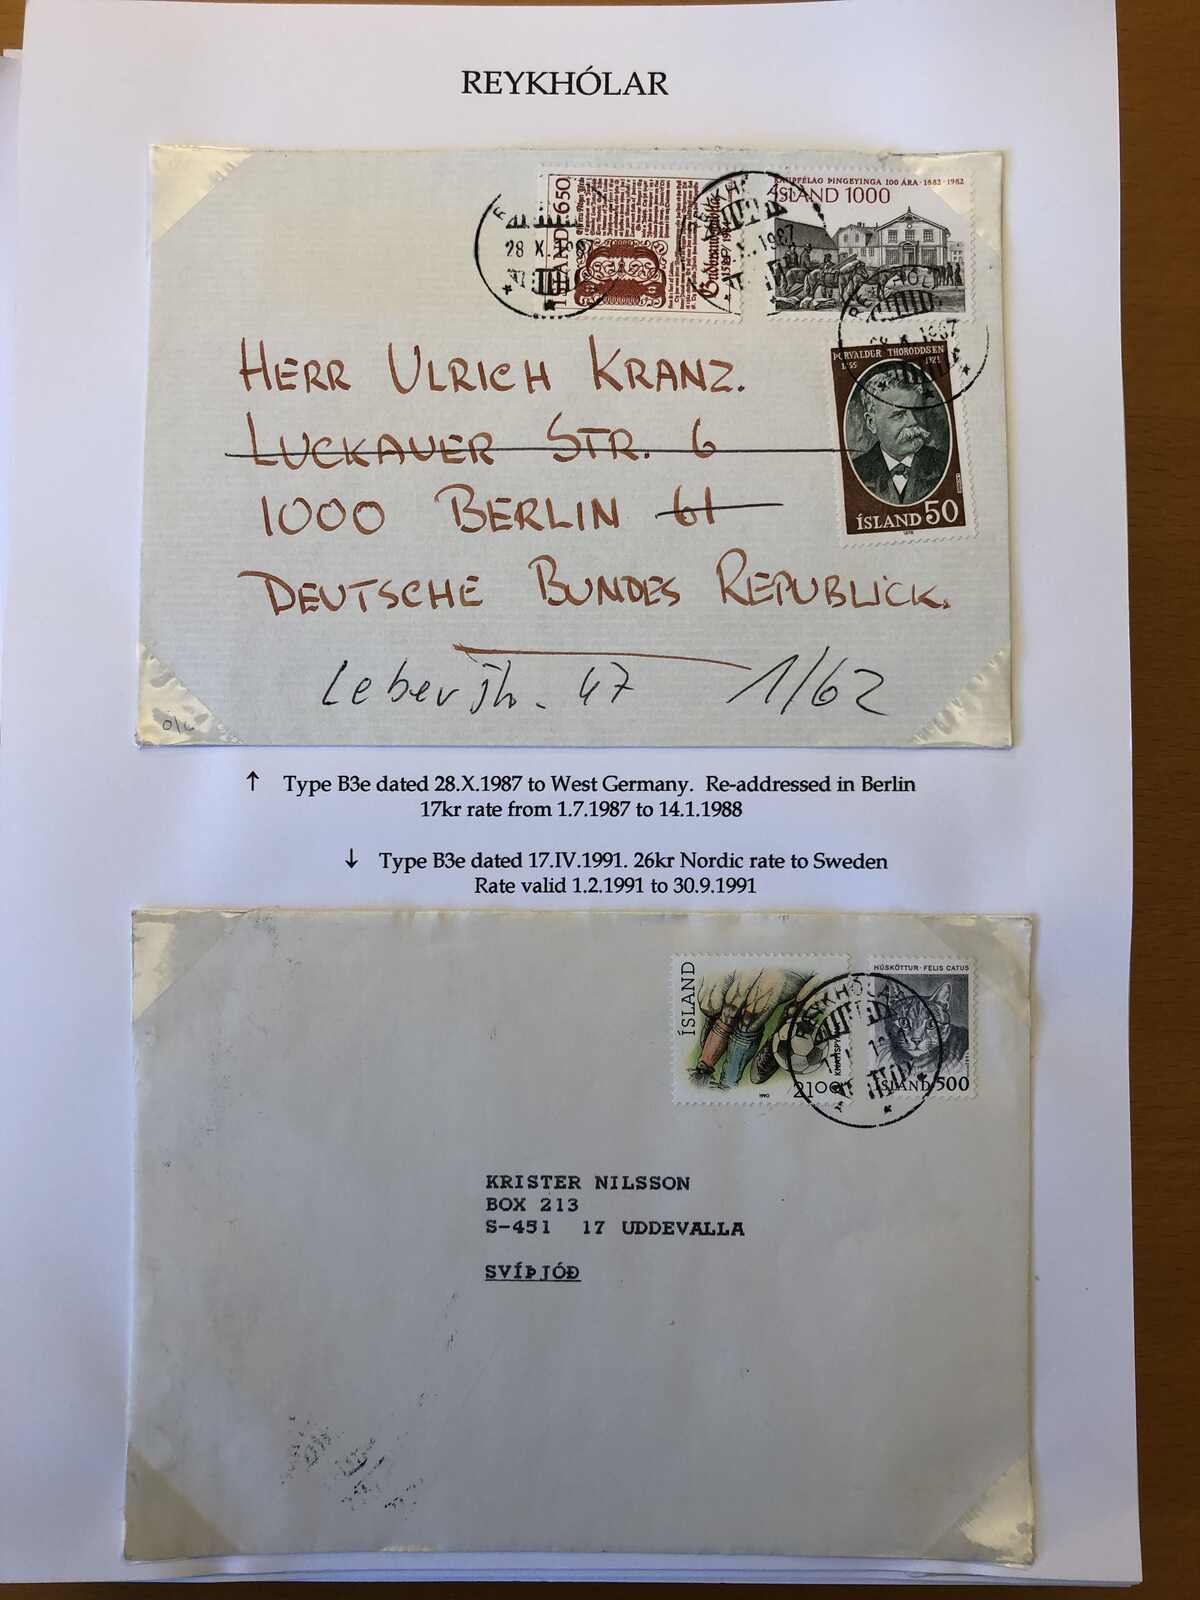 REYKHÓLAR
ÍSLAND 650
Guðbrandsbiblía
1584 1984
KAUPFÉLAG ÞINGEYINGA 100 ÁRA · 1882 · 1982
ÍSLAND 1000
28 X. 1987
REYKHÓL
1987
ÞORVALDUR THORODDSEN
1855 1921
ÍSLAND 50
1978
HERR ULRICH KRANZ.
LUCKAUER STR. 6
1000 BERLIN 61
DEUTSCHE BUNDES REPUBLICK.
Leberstr. 47 1/62
↑ Type B3e dated 28.X.1987 to West Germany. Re-addressed in Berlin
17kr rate from 1.7.1987 to 14.1.1988
↓ Type B3e dated 17.IV.1991. 26kr Nordic rate to Sweden
Rate valid 1.2.1991 to 30.9.1991
ÍSLAND
2100
1990
REYKHÓLA
HÚSKÖTTUR · FELIS CATUS
ÍSLAND 500
KRISTER NILSSON
BOX 213
S-451 17 UDDEVALLA
SVÍÞJÓÐ